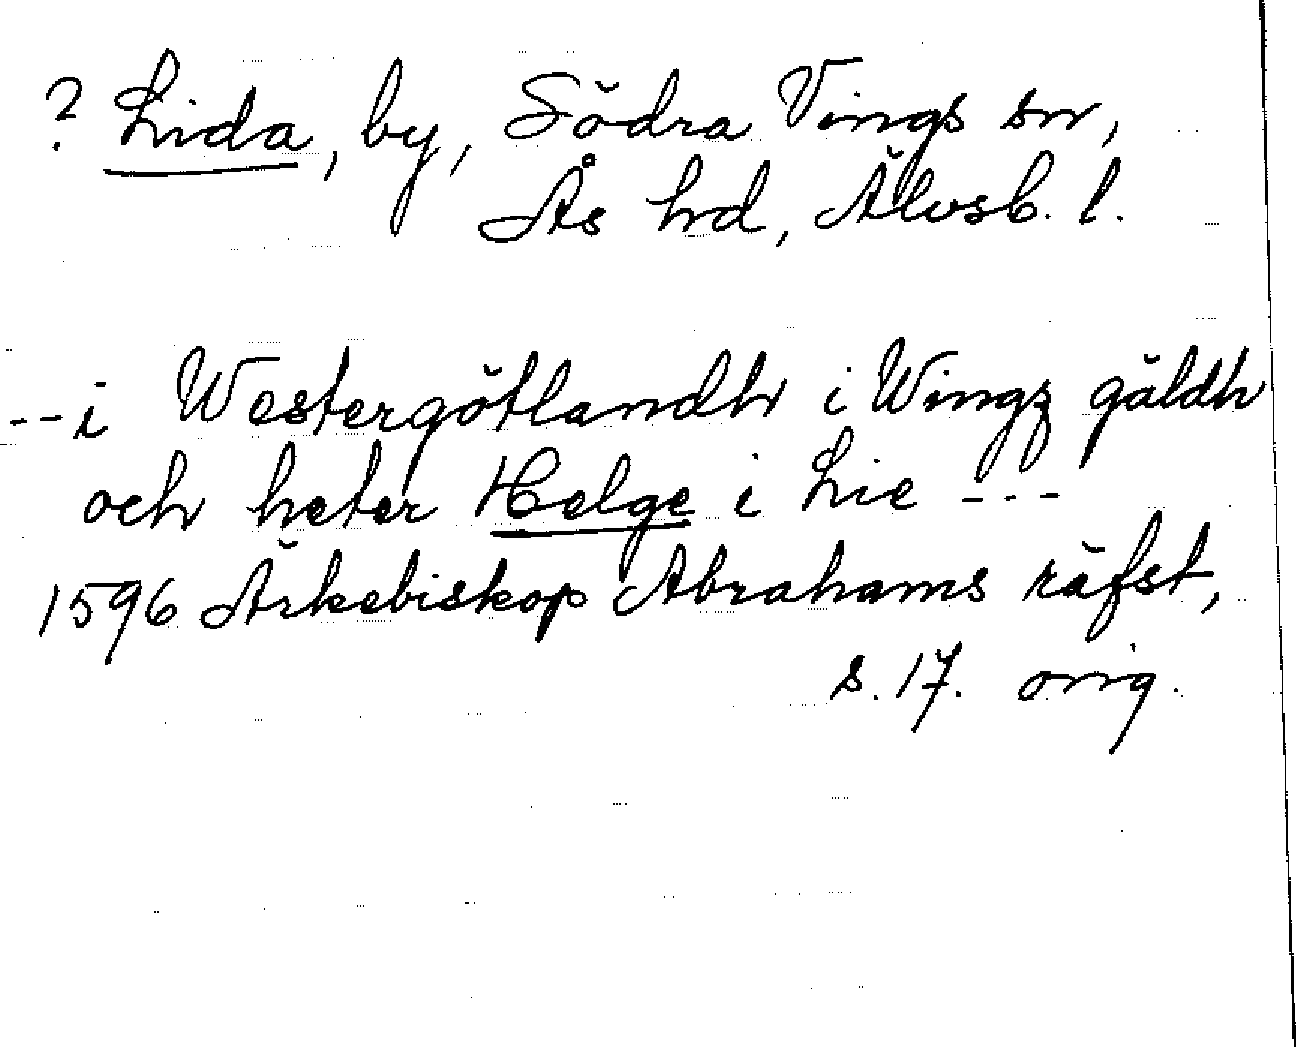 ? Lida, by, Södra Vings sn,
Ås hd, Älvsb. l.
--i Westergötlandh i Wingz gäldh
och heter Helge i Lie ---
1596 Ärkebiskop Abrahams räfst,
s. 17. orig.